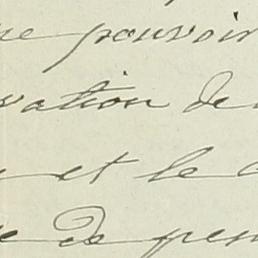 pouvoir
vation de
et le
de pen